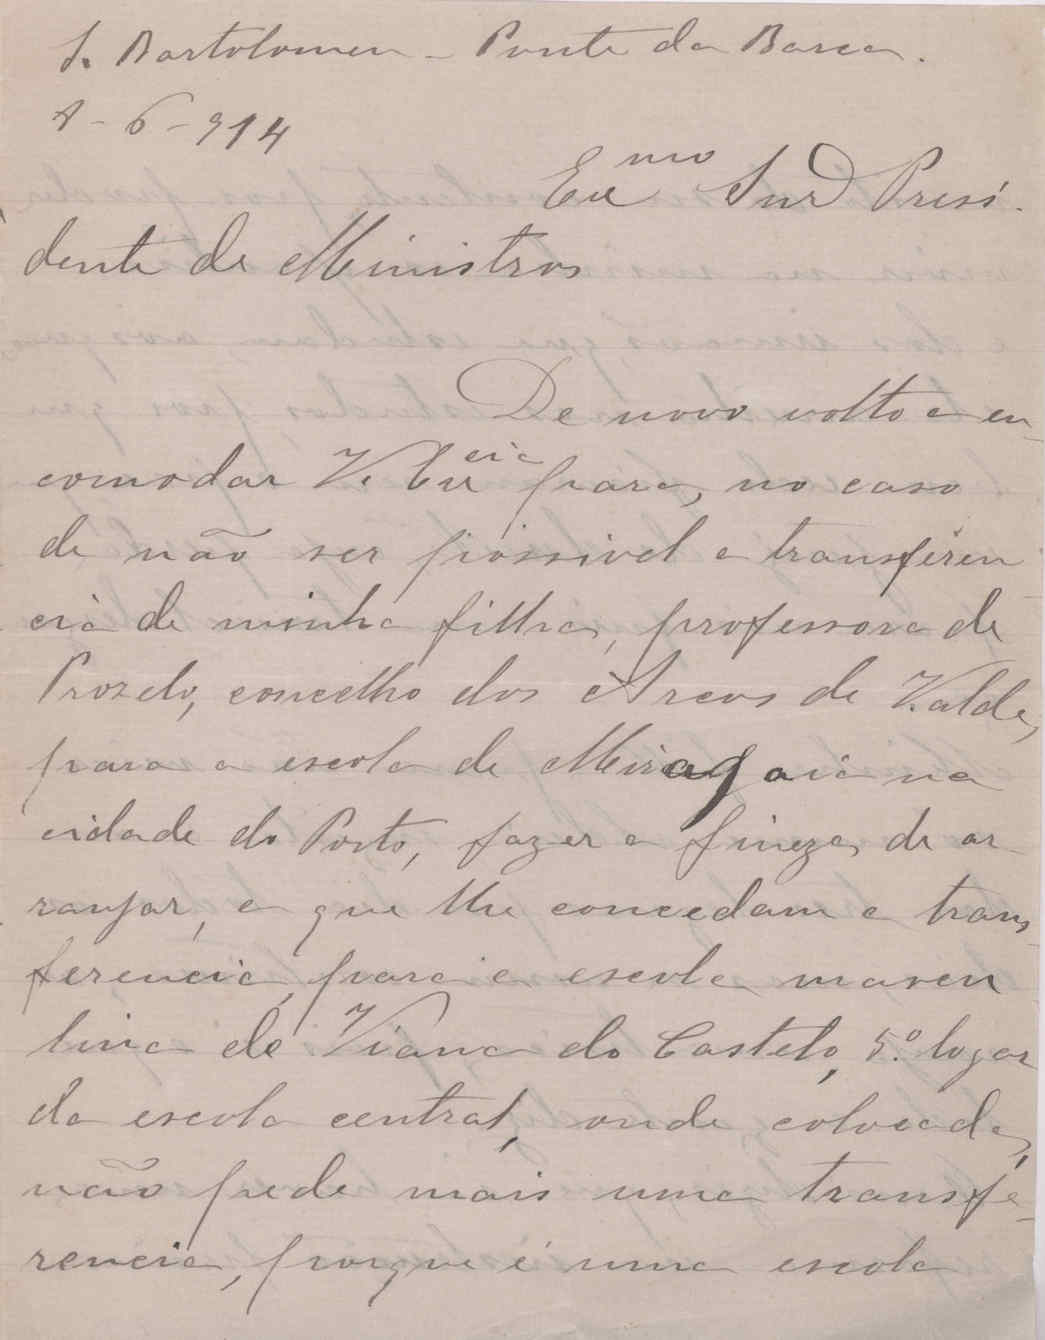 S. Bartolomeu - Ponte da Barca.
8-6-914
Exmo Snr Presi-
dente de Ministros
De novo volto a en-
comodar V. Excia para, no caso
de não ser possivel a transferen
cia de minha filha, professora de
Prozelo, concelho dos Arcos de Val de Vez,
para a escola de Miragaia na
cidade do Porto, fazer a fineza de ar-
ranjar, a que lhe concedam a trans-
ferencia, para a escola mascu
lina de Viana do Castelo, 5.º logar
da escola central, onde colocada,
não pede mais uma transfe-
rencia, porque é uma escola